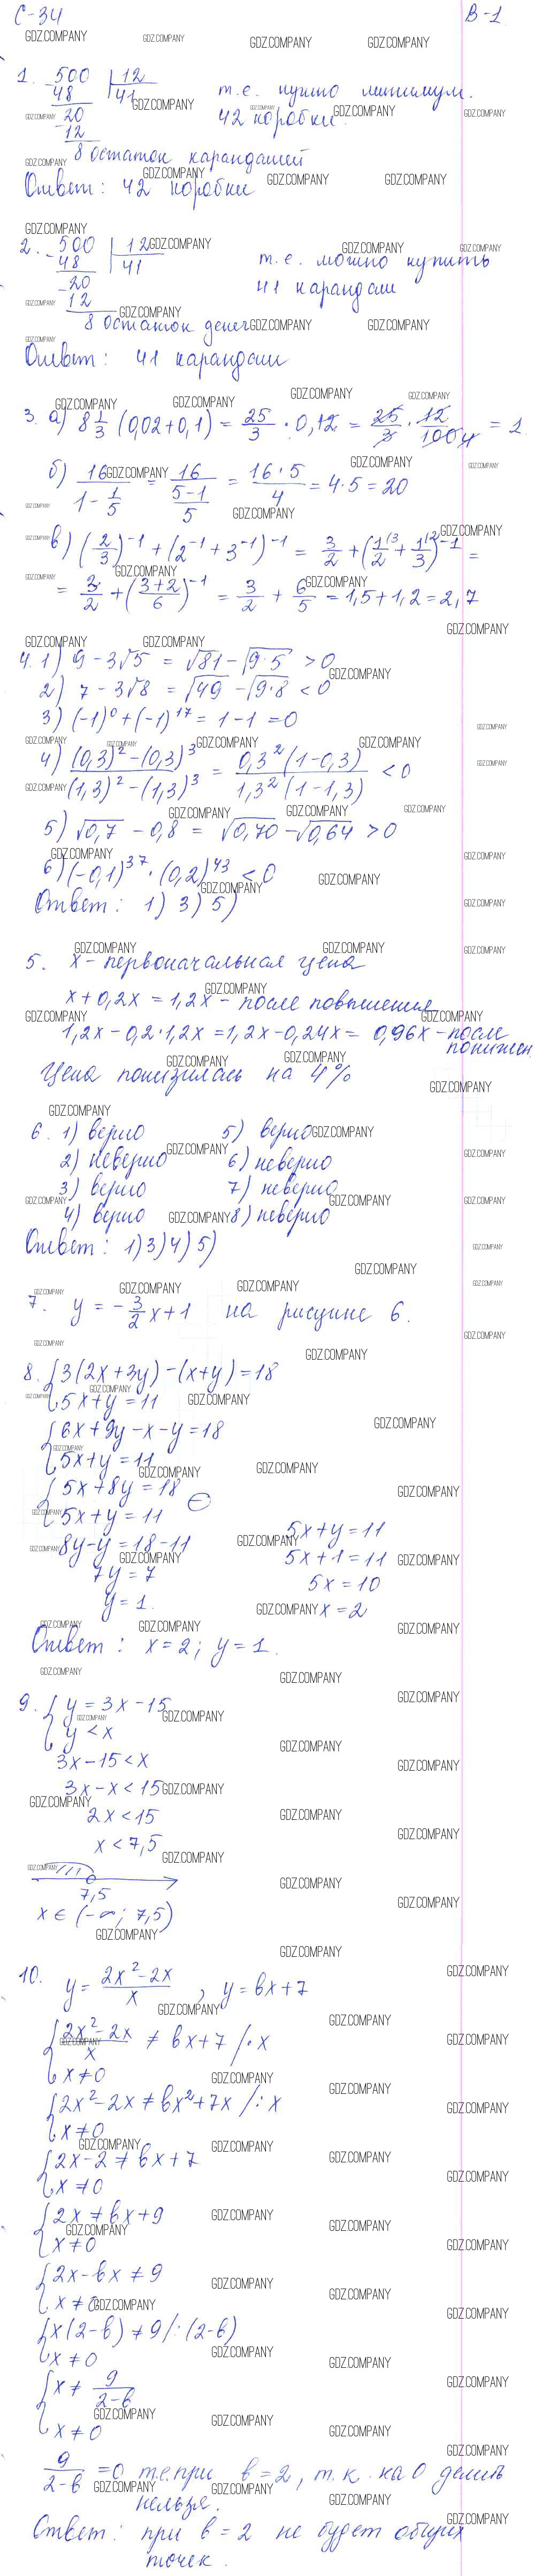 С-34 В-1
1. 500 | 12
48 41 т.е. нужно минимум
20 42 коробки.
12
8 остаток карандашей
Ответ: 42 коробки
2. 500 | 12
48 41 т.е. можно купить
20 41 карандаш
12
8 остаток денег
Ответ: 41 карандаш
3. а) 8 1/3 (0,02+0,1) = 25/3 · 0,12 = 25/3 · 12/100 4 = 1.
б) 16/(1 - 1/5) = 16/((5-1)/5) = (16·5)/4 = 4·5 = 20
в) (2/3)^-1 + (2^-1 + 3^-1)^-1 = 3/2 + (1/2 + 1/3)^-1 =
= 3/2 + ((3+2)/6)^-1 = 3/2 + 6/5 = 1,5+1,2 = 2,7
4. 1) 9 - 3√5 = √81 - √9·5 > 0
2) 7 - 3√8 = √49 - √9·8 < 0
3) (-1)^0 + (-1)^17 = 1 - 1 = 0
4) ((0,3)^2 - (0,3)^3)/((1,3)^2 - (1,3)^3) = 0,3^2(1-0,3)/1,3^2(1-1,3) < 0
5) √0,7 - 0,8 = √0,70 - √0,64 > 0
6) (-0,1)^37 · (0,2)^43 < 0
Ответ: 1) 3) 5)
5. x - первоначальная цена
x + 0,2x = 1,2x - после повышения
1,2x - 0,2·1,2x = 1,2x - 0,24x = 0,96x - после
понижен.
Цена понизилась на 4%
6. 1) верно 5) верно
2) неверно 6) неверно
3) верно 7) неверно
4) верно 8) неверно
Ответ: 1) 3) 4) 5)
7. y = -3/2 x + 1 на рисунке 6.
8. { 3(2x+3y) - (x+y) = 18
5x + y = 11
{ 6x + 9y - x - y = 18
5x + y = 11
{ 5x + 8y = 18
5x + y = 11 ⊖
8y - y = 18 - 11 5x + y = 11
7y = 7 5x + 1 = 11
y = 1. 5x = 10
x = 2
Ответ: x = 2; y = 1.
9. { y = 3x - 15
y < x
3x - 15 < x
3x - x < 15
2x < 15
x < 7,5
7,5
x ∈ (-∞; 7,5)
10. y = (2x^2 - 2x)/x, y = bx + 7
{ (2x^2 - 2x)/x ≠ bx + 7 /·x
x ≠ 0
{ 2x^2 - 2x ≠ bx^2 + 7x /:x
x ≠ 0
{ 2x - 2 ≠ bx + 7
x ≠ 0
{ 2x ≠ bx + 9
x ≠ 0
{ 2x - bx ≠ 9
x ≠ 0
{ x(2-b) ≠ 9 /:(2-b)
x ≠ 0
{ x ≠ 9/(2-b)
x ≠ 0
9/(2-b) = 0 т.е. при b = 2, т.к. на 0 делить
нельзя.
Ответ: при b = 2 не будет общих
точек.
GDZ.COMPANY